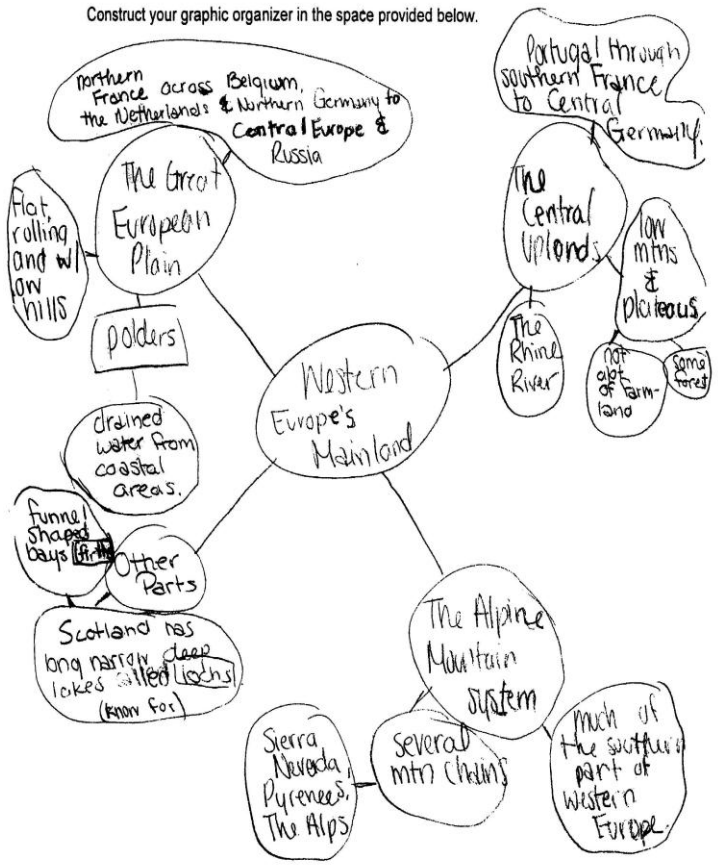 Construct your graphic organizer in the space provided below.
northern
France across Belgium,
the Netherlands & Northern Germany to
Central Europe &
Russia
The Great
European
Plain
Flat,
rolling
and w/
low
hills
polders
drained
water from
coastal
areas.
Portugal through
southern France
to Central
Germany.
The
Central
Uplands
low
mtns
&
plateaus
The
Rhine
River
not
alot
of farm-
land
some
forest
Western
Europe's
Mainland
funnel
shaped
bays firths
Other
Parts
Scotland has
long narrow deep
lakes called lochs
(know for)
The Alpine
Mountain
system
several
mtn chains
Sierra
Nevada,
Pyrenees,
The Alps
much of
the southern
part of
Western
Europe.